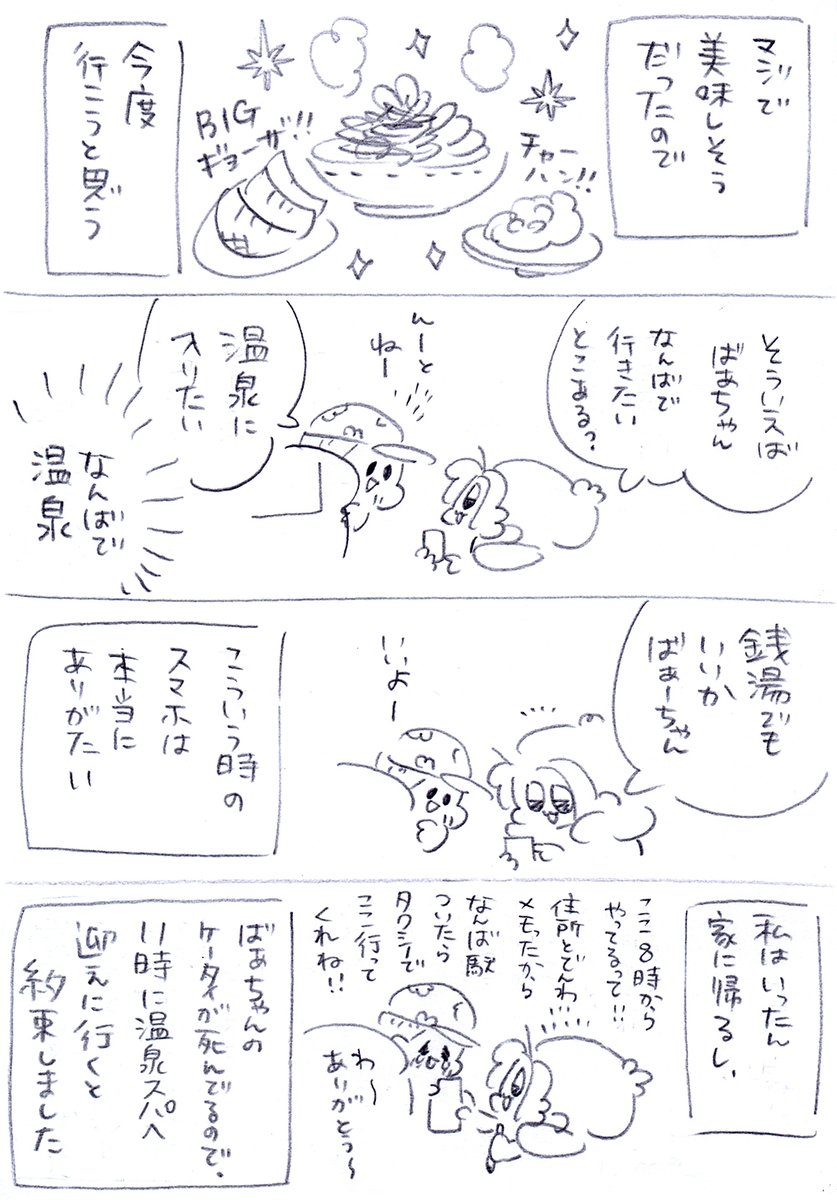 マジで
美味しそう
だったので
チャー
ハン!!
BIG
ギョーザ!!
今度
行こうと思う
そういえば
ばあちゃん
なんばで
行きたい
とこある?
んーと
ねー
温泉に
入りたい
なんばで
温泉
銭湯でも
いいか
ばぁーちゃん
いいよー
こういう時の
スマホは
本当に
ありがたい
私はいったん
家に帰るし、
ここ8時から
やってるって!!
住所とでんわ
メモったから
なんば駅
ついたら
タクシーで
ここ行って
くれね!!
わ〜
ありがとう〜
ばあちゃんの
ケータイが死んでるので、
11時に温泉スパへ
迎えに行くと
約束しました